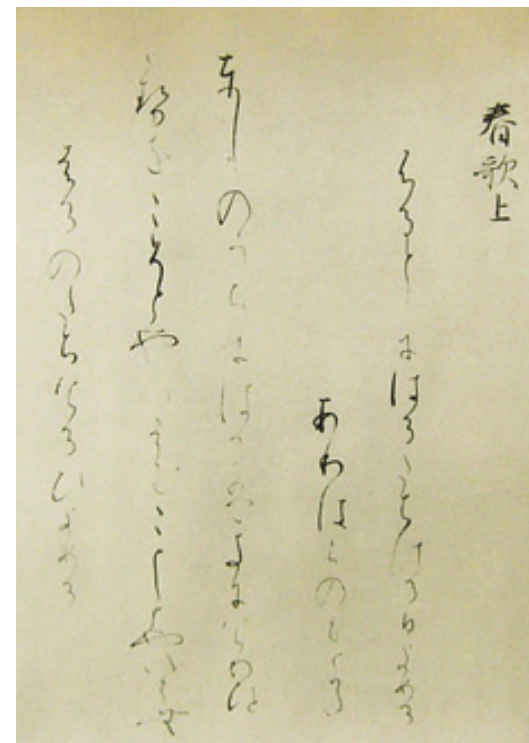 春歌上
ふるとしにはるたちける日よめる
ありはらのもとかた
としのうちにはるはきにけりひと
とせをこそとやいはむことしとやいはむ
はるのたちけるひよめる